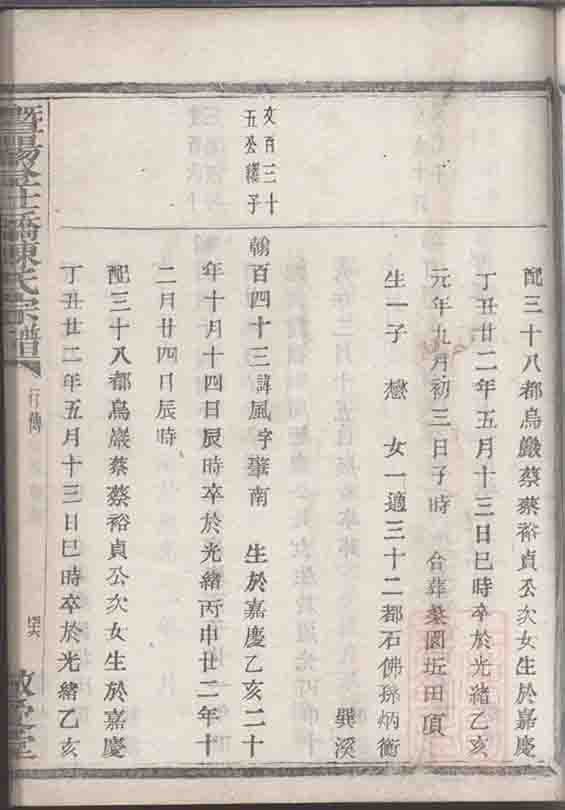 配三十八都烏巖蔡蔡裕貞公次女生於嘉慶
丁丑廿二年五月十三日巳時卒於光緒乙亥
元年九月初三日子時 合葬 園坵田頂
生一子 懋 女一適三十二都石佛孫炳衡
巽溪
文百三十
五公 子
翰百四十三諱風字肇南 生於嘉慶乙亥二十
年十月十四日辰時卒於光緒丙申廿二年十
二月廿四日辰時
配三十八都烏巖蔡蔡裕貞公次女生於嘉慶
丁丑廿二年五月十三日巳時卒於光緒乙亥
暨陽 橋陳氏宗譜
行傳